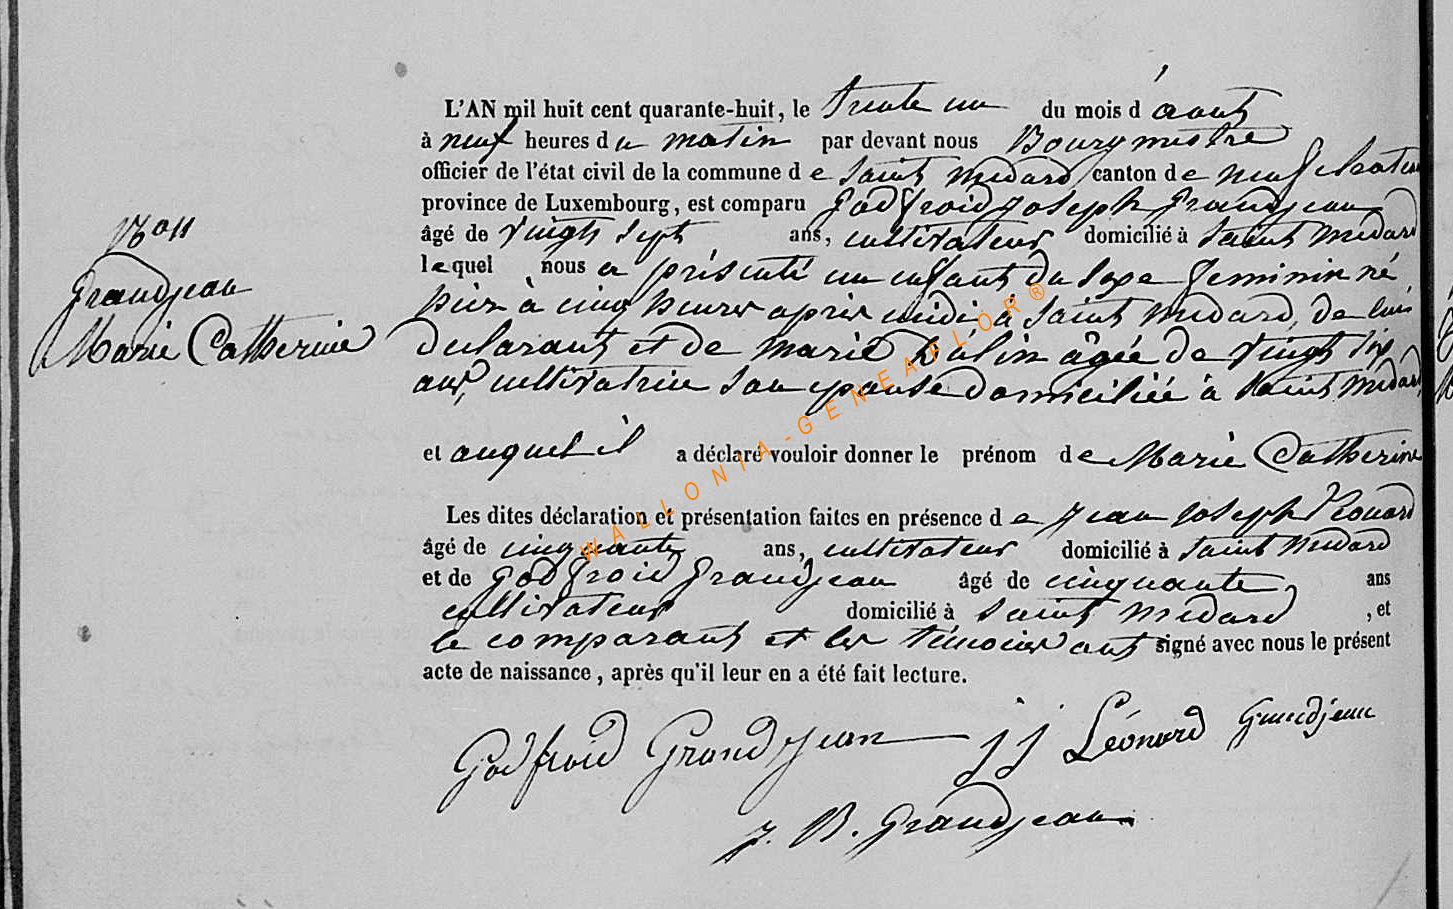 L'AN mil huit cent quarante-huit, le trente un du mois d'aout
à neuf heures du matin par devant nous Bourgmestre
officier de l'état civil de la commune de Saint Médard canton de neufchateau
province de Luxembourg, est comparu Godfroid joseph grandjean
âgé de vingt sept ans, cultivateur domicilié à Saint Médard
lequel nous a présenté un enfant du sexe feminin né
hier à cinq heures après midi à Saint Médard, de lui
déclarant et de marie âgée de vingt six
ans, cultivatrice son epouse domiciliée à Saint Médard
et auquel il a déclaré vouloir donner le prénom de Marie Catherine
Les dites déclaration et présentation faites en présence de jean joseph Léonard
âgé de cinquante ans, cultivateur domicilié à Saint Médard
et de godfroid grandjean âgé de cinquante ans
cultivateur domicilié à Saint Médard, et
le comparant et les témoins ont signé avec nous le présent
acte de naissance, après qu'il leur en a été fait lecture.
grandjean
Marie Catherine
Godfroid Grandjean jj Léonard Grandjean
j. B. Grandjean
WALLONIA-GENEAFLOR®